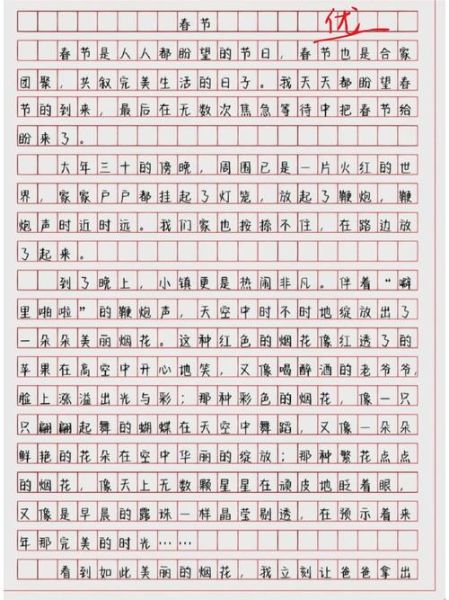 春节
优
春节是人人都盼望的节日，春节也是合家
团聚，共叙完美生活的日子。我天天都盼望春
节的到来，最后在无数次焦急等待中把春节给
盼来了。
大年三十的傍晚，周围已是一片火红的世
界，家家户户都挂起了灯笼，放起了鞭炮，鞭
炮声时近时远。我们家也按捺不住，在路边放
了起来。
到了晚上，小镇更是热闹非凡。伴着“噼
里啪啦”的鞭炮声，天空中时不时地绽放出了
一朵朵美丽烟花。这种红色的烟花像红透了的
苹果在高空中开心地笑，又像喝醉酒的老爷爷，
脸上涨溢出光与彩；那种彩色的烟花，像一只
只翩翩起舞的蝴蝶在天空中舞蹈，又像一朵朵
鲜艳的花朵在空中华丽的绽放；那种繁花点点
的烟花，像天上无数颗星星在顽皮地眨着眼，
又像是早晨的露珠一样晶莹剔透，在预示着来
年那完美的时光……
看到如此美丽的烟花，我立刻让爸爸拿出